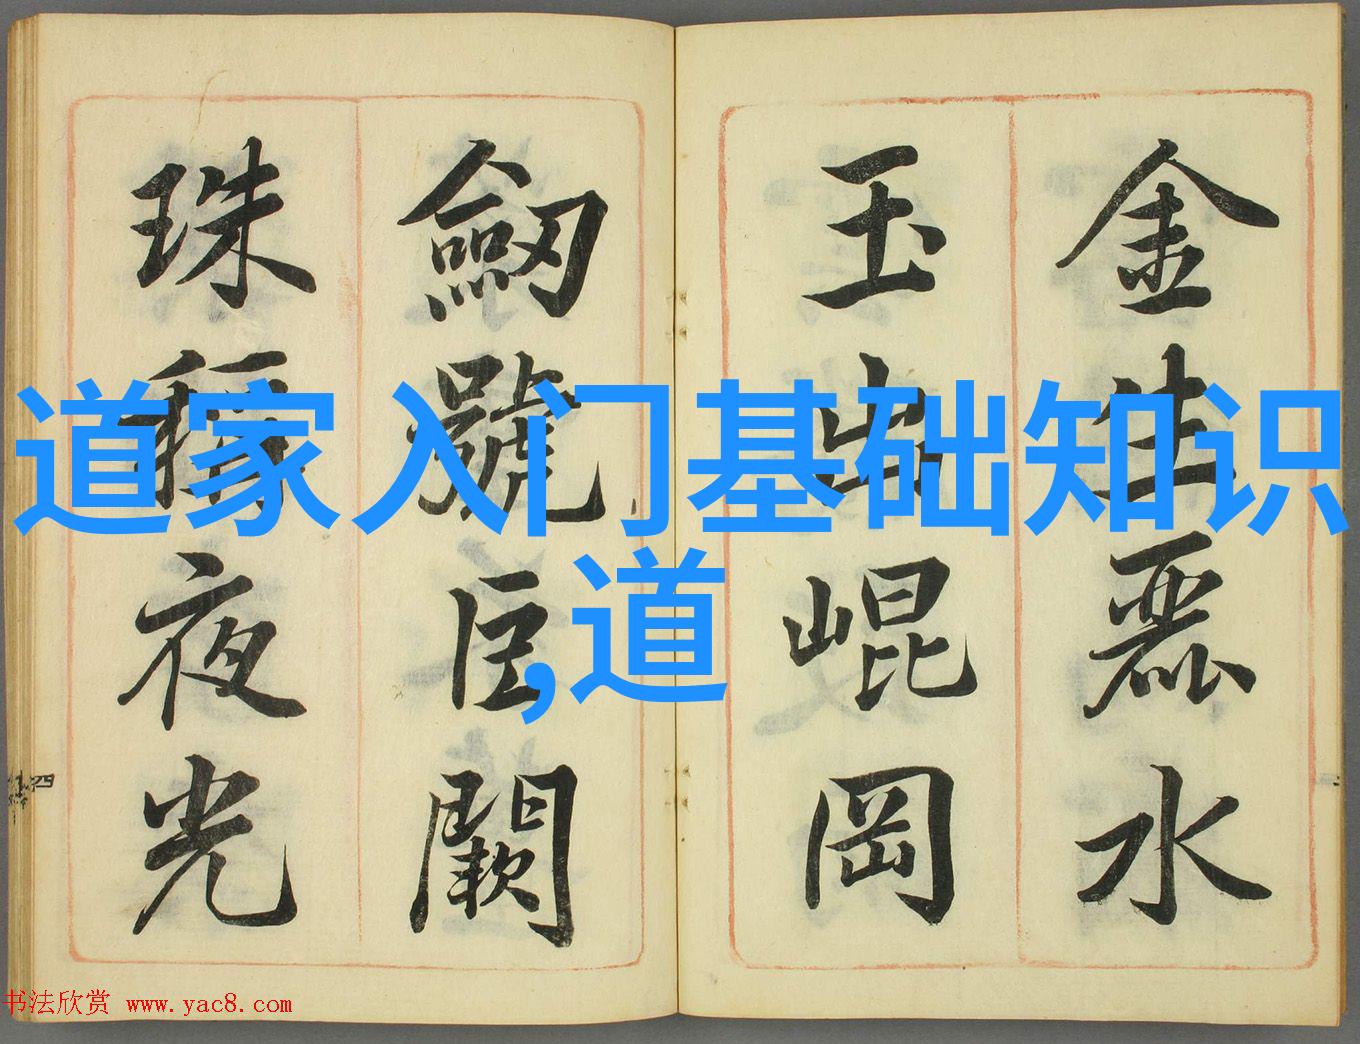 金生麗水
玉出崐岡
劒號巨闕
珠稱夜光
道家入门基础知识
,道
书法欣赏 www.yac8.com